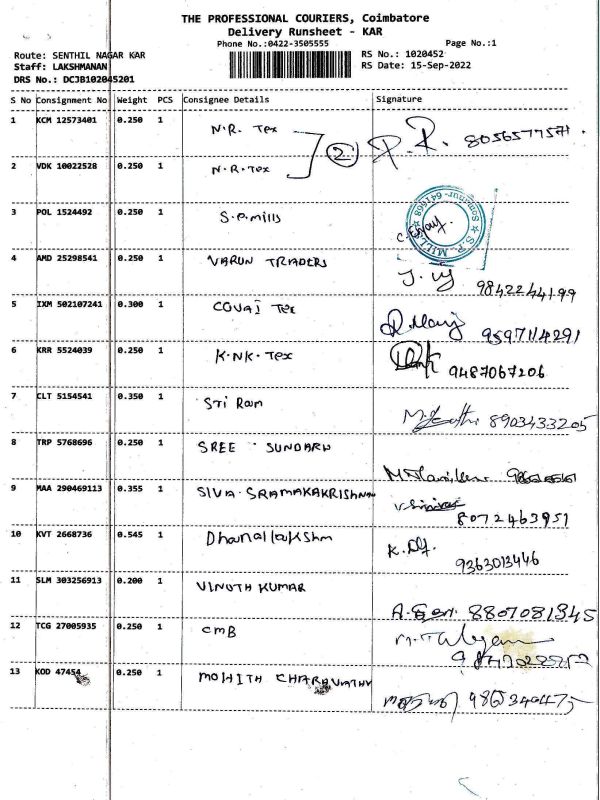 THE PROFESSIONAL COURIERS, Coimbatore
Delivery Runsheet - KAR
Phone No.:0422-3505555 Page No.:1
Route: SENTHIL NAGAR KAR RS No.: 1020452
Staff: LAKSHMANAN RS Date: 15-Sep-2022
DRS No.: DCJB102045201
S No Consignment No Weight PCS Consignee Details Signature
1 KCM 12573401 0.250 1 N.R. Tex 2 P.R. 8056577571
2 VDK 10022528 0.250 1 N.R.Tex
3 POL 1524492 0.250 1 S.P.mills S.P. MILLS Somanur-641668
4 AMD 25298541 0.250 1 VARUN TRADERS 9842244199
5 IXM 502107241 0.300 1 COVAI Tex 9597114291
6 KRR 5524039 0.250 1 K.NK.Tex 9487067206
7 CLT 5154541 0.350 1 Sri Ram 8903433205
8 TRP 5768696 0.250 1 SREE SUNDARN
9 MAA 290469113 0.355 1 SIVA SRAMAKAKRISHNAN 8072463951
10 KVT 2668736 0.545 1 Dhanallakshm 9363013446
11 SLM 303256913 0.200 1 VINOTH KUMAR 8807081345
12 TCG 27005935 0.250 1 CMB
13 KOD 47454 0.250 1 MOHITH